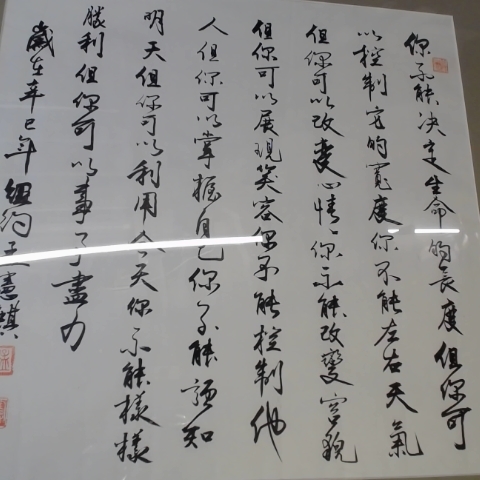 你不能决定生命的長度但你可
以控制它的寬度你不能左右天氣
但你可以改變心情你不能改變容貌
但你可以展現笑容你不能控制他
人但你可以掌握自己你不能預知
明天但你可以利用今天你不能樣樣
勝利但你可以事々盡力
歲在辛巳年紐約王憲